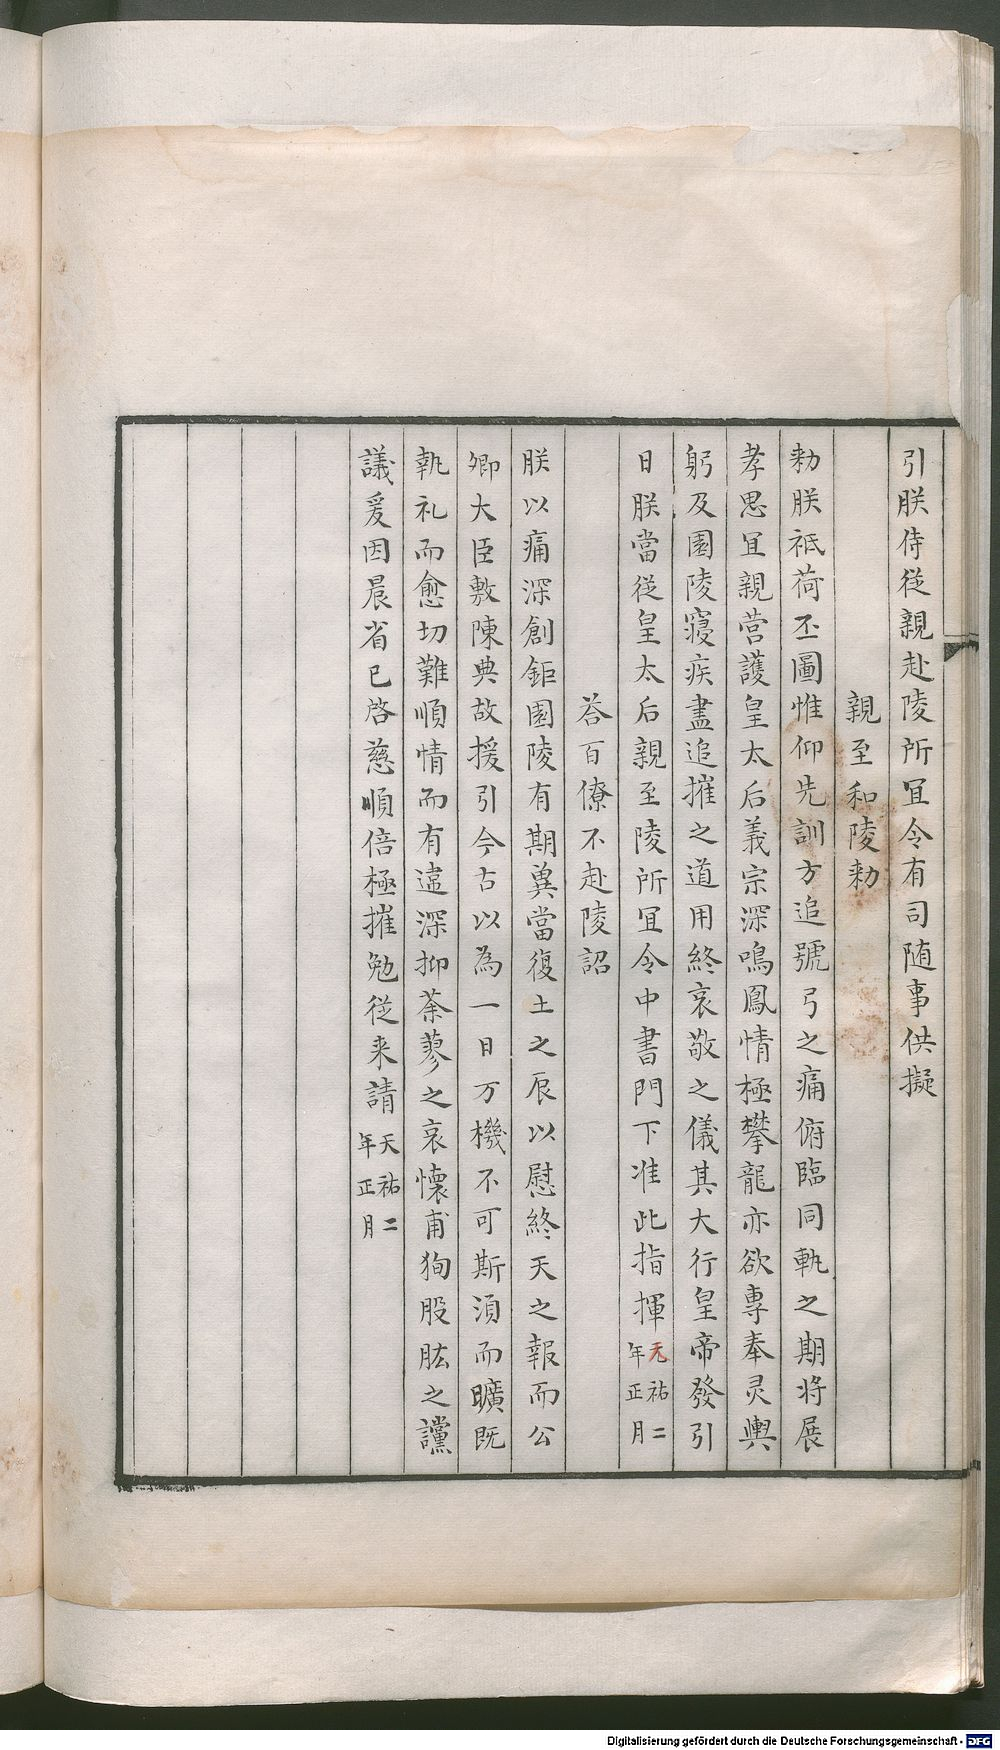 引朕侍従親赴陵所冝令有司随事供擬
親至和陵勑
勑朕祗荷丕圖惟仰先訓方追號弓之痛俯臨同軌之期将展
孝思冝親营護皇太后義宗深鳴鳳情極攀龍亦欲專奉灵輿
躬及園陵寢疾盡追摧之道用終哀敬之儀其大行皇帝發引
日朕當従皇太后親至陵所冝令中書門下准此指揮天祐二年正月
荅百僚不赴陵詔
朕以痛深創鉅園陵有期兾當復土之辰以慰終天之報而公
卿大臣敷陳典故援引今古以為一日万機不可斯湏而曠既
執礼而愈切難順情而有違深抑荼蓼之哀懷甫狥股肱之讜
議爰因晨省已啓慈顺倍極摧勉従来請天祐二年正月
Digitalisierung gefördert durch die Deutsche Forschungsgemeinschaft - DFG